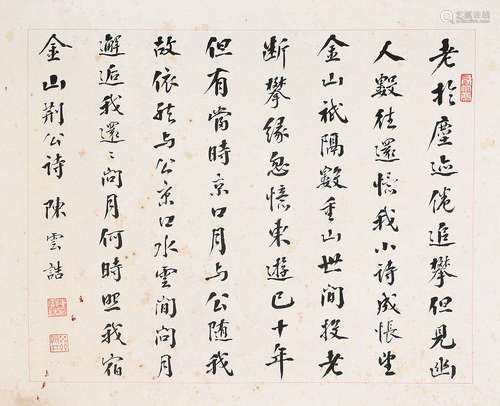 老於塵迹倦追攀但見幽
人數往還憶我小詩成悵望
金山祗隔數重山世間投老
斷攀緣忽憶東遊已十年
但有當時京口月与公隨我
故依然与公京口水雲間問月
邂逅我還〻問月何時照我宿
金山荆公詩 陳雲誥